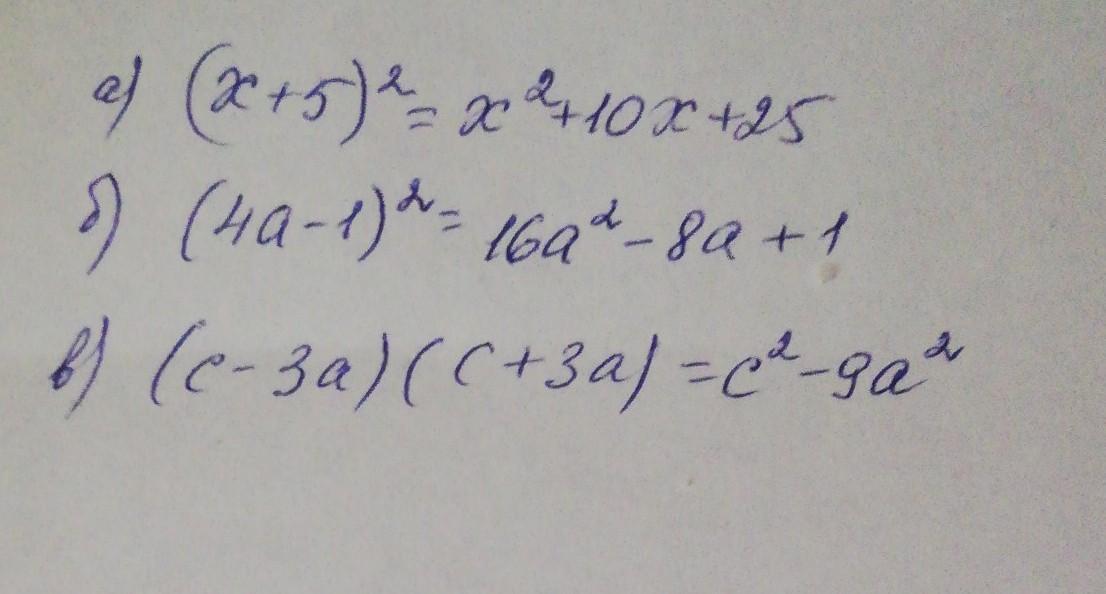 а) (x+5)²=x²+10x+25
б) (4a-1)²=16a²-8a+1
в) (c-3a)(c+3a)=c²-9a²